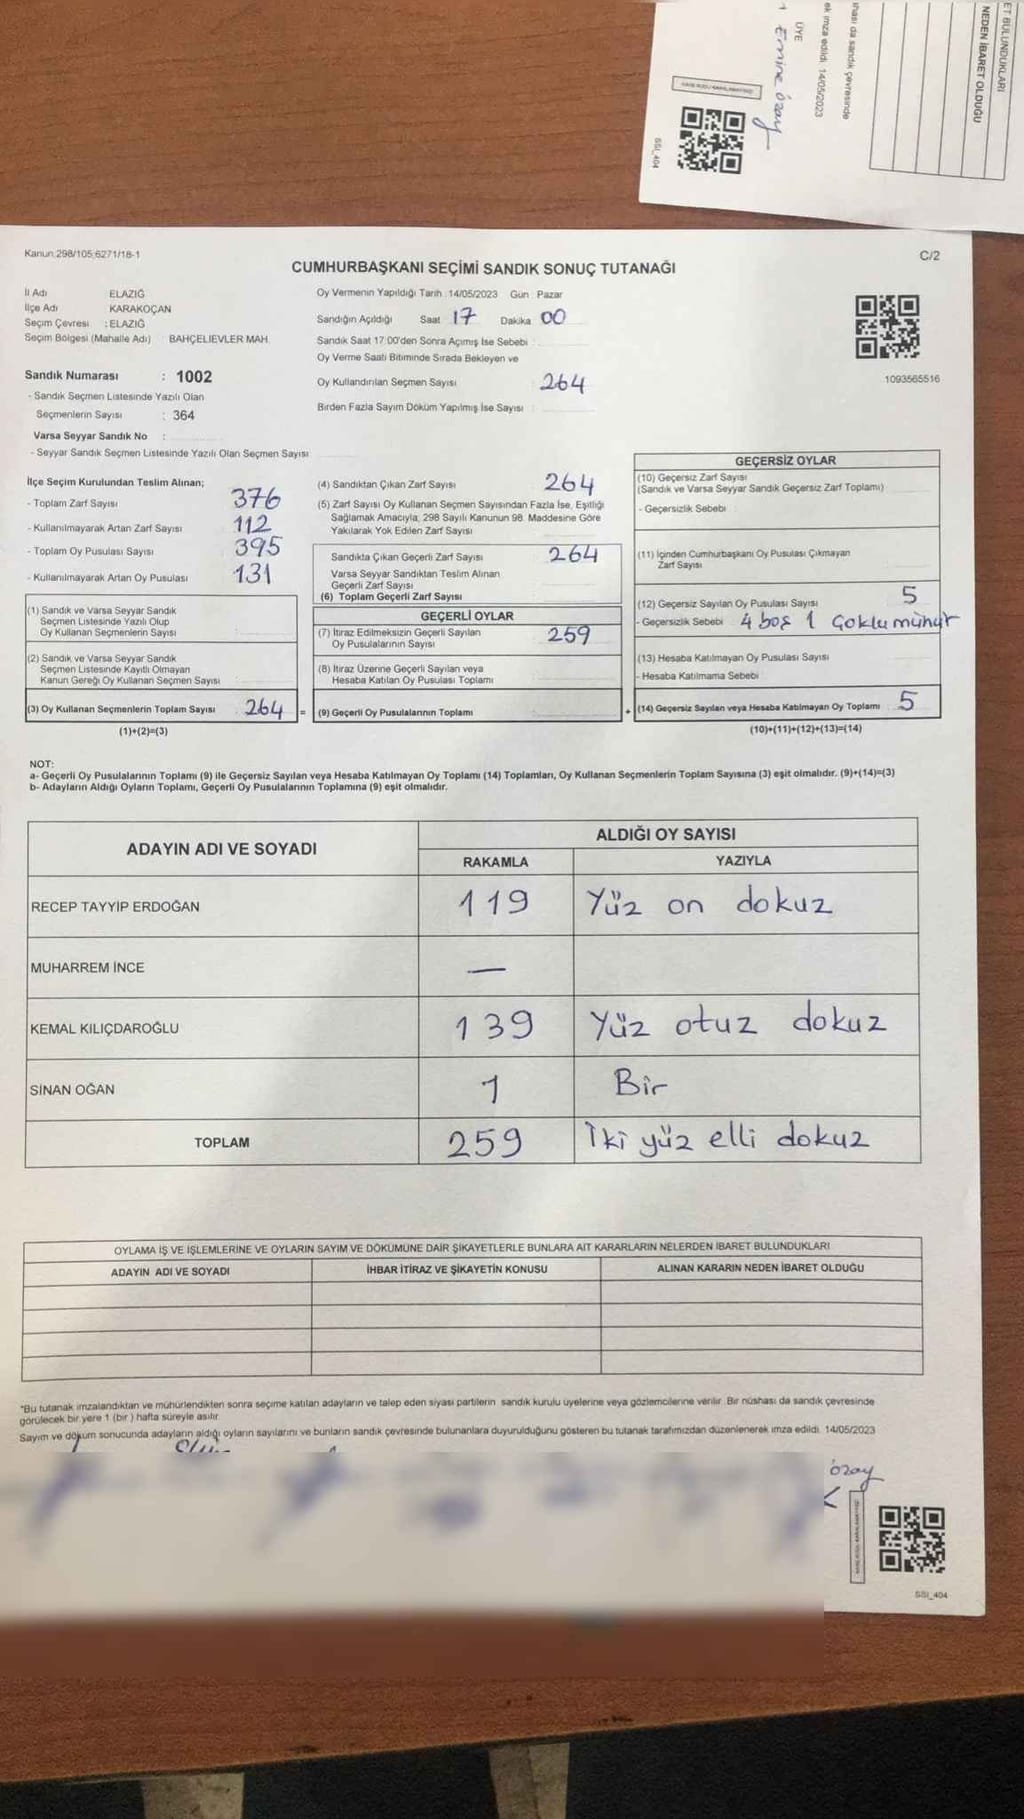 ET BULUNDUKLARI
NEDEN İBARET OLDUĞU
ihası da sandık çevresinde
ek imza edildi. 14/05/2023
ÜYE
Emine özay
SSI_404
Kanun:298/105;6271/18-1
C/2
CUMHURBAŞKANI SEÇİMİ SANDIK SONUÇ TUTANAĞI
İl Adı ELAZIĞ
İlçe Adı KARAKOÇAN
Seçim Çevresi : ELAZIĞ
Seçim Bölgesi (Mahalle Adı) : BAHÇELİEVLER MAH.
Sandık Numarası : 1002
- Sandık Seçmen Listesinde Yazılı Olan
Seçmenlerin Sayısı : 364
Varsa Seyyar Sandık No :
- Seyyar Sandık Seçmen Listesinde Yazılı Olan Seçmen Sayısı
Oy Vermenin Yapıldığı Tarih : 14/05/2023 Gün : Pazar
Sandığın Açıldığı Saat 17 Dakika 00
Sandık Saat 17:00'den Sonra Açımış İse Sebebi :
Oy Verme Saati Bitiminde Sırada Bekleyen ve
Oy Kullandırılan Seçmen Sayısı 264
Birden Fazla Sayım Döküm Yapılmış İse Sayısı
1093565516
İlçe Seçim Kurulundan Teslim Alınan;
- Toplam Zarf Sayısı 376
- Kullanılmayarak Artan Zarf Sayısı 112
- Toplam Oy Pusulası Sayısı 395
- Kullanılmayarak Artan Oy Pusulası 131
(1) Sandık ve Varsa Seyyar Sandık
Seçmen Listesinde Yazılı Olup
Oy Kullanan Seçmenlerin Sayısı
(2) Sandık ve Varsa Seyyar Sandık
Seçmen Listesinde Kayıtlı Olmayan
Kanun Gereği Oy Kullanan Seçmen Sayısı
(3) Oy Kullanan Seçmenlerin Toplam Sayısı 264 =
(1)+(2)=(3)
(4) Sandıktan Çıkan Zarf Sayısı 264
(5) Zarf Sayısı Oy Kullanan Seçmen Sayısından Fazla İse, Eşitliği
Sağlamak Amacıyla; 298 Sayılı Kanunun 98. Maddesine Göre
Yakılarak Yok Edilen Zarf Sayısı
Sandıkta Çıkan Geçerli Zarf Sayısı 264
Varsa Seyyar Sandıktan Teslim Alınan
Geçerli Zarf Sayısı
(6) Toplam Geçerli Zarf Sayısı
GEÇERLİ OYLAR
(7) İtiraz Edilmeksizin Geçerli Sayılan
Oy Pusulalarının Sayısı 259
(8) İtiraz Üzerine Geçerli Sayılan veya
Hesaba Katılan Oy Pusulası Toplamı
(9) Geçerli Oy Pusulalarının Toplamı +
GEÇERSİZ OYLAR
(10) Geçersiz Zarf Sayısı
(Sandık ve Varsa Seyyar Sandık Geçersiz Zarf Toplamı)
- Geçersizlik Sebebi
(11) İçinden Cumhurbaşkanı Oy Pusulası Çıkmayan
Zarf Sayısı
(12) Geçersiz Sayılan Oy Pusulası Sayısı 5
- Geçersizlik Sebebi 4 boş 1 Çoklu mühür
(13) Hesaba Katılmayan Oy Pusulası Sayısı
- Hesaba Katılmama Sebebi
(14) Geçersiz Sayılan veya Hesaba Katılmayan Oy Toplamı 5
(10)+(11)+(12)+(13)=(14)
NOT:
a- Geçerli Oy Pusulalarının Toplamı (9) ile Geçersiz Sayılan veya Hesaba Katılmayan Oy Toplamı (14) Toplamları, Oy Kullanan Seçmenlerin Toplam Sayısına (3) eşit olmalıdır. (9)+(14)=(3)
b- Adayların Aldığı Oyların Toplamı, Geçerli Oy Pusulalarının Toplamına (9) eşit olmalıdır.
ADAYIN ADI VE SOYADI ALDIĞI OY SAYISI
RAKAMLA YAZIYLA
RECEP TAYYİP ERDOĞAN 119 Yüz on dokuz
MUHARREM İNCE —
KEMAL KILIÇDAROĞLU 139 Yüz otuz dokuz
SİNAN OĞAN 1 Bir
TOPLAM 259 İki yüz elli dokuz
OYLAMA İŞ VE İŞLEMLERİNE VE OYLARIN SAYIM VE DÖKÜMÜNE DAİR ŞİKAYETLERLE BUNLARA AİT KARARLARIN NELERDEN İBARET BULUNDUKLARI
ADAYIN ADI VE SOYADI İHBAR İTİRAZ VE ŞİKAYETİN KONUSU ALINAN KARARIN NEDEN İBARET OLDUĞU
*Bu tutanak imzalandıktan ve mühürlendikten sonra seçime katılan adayların ve talep eden siyasi partilerin sandık kurulu üyelerine veya gözlemcilerine verilir. Bir nüshası da sandık çevresinde
görülecek bir yere 1 (bir) hafta süreyle asılır.
Sayım ve döküm sonucunda adayların aldığı oyların sayılarını ve bunların sandık çevresinde bulunanlara duyurulduğunu gösteren bu tutanak tarafımızdan düzenlenerek imza edildi. 14/05/2023
özay
SSI_404